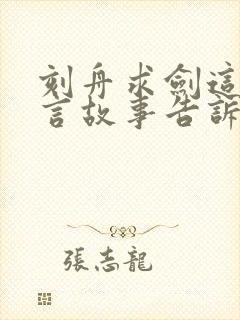 刻舟求劍這
言故事告訴
張志龍